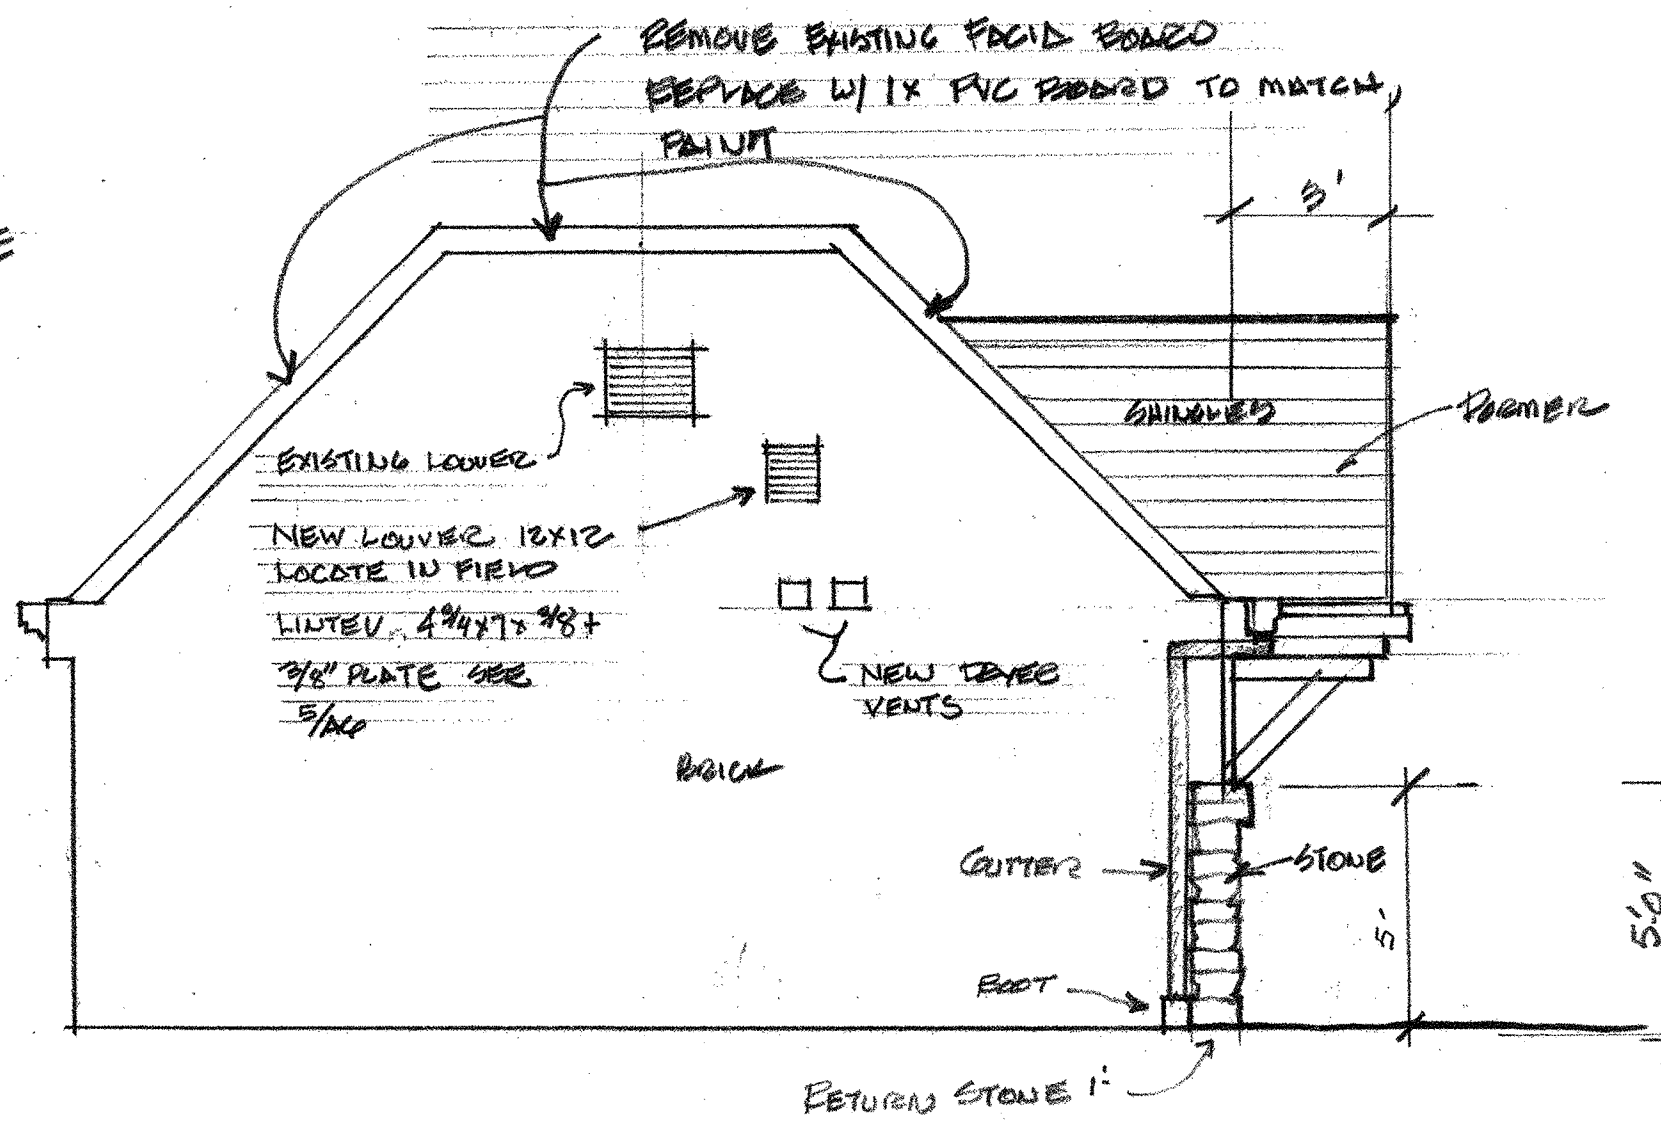 REMOVE EXISTING FACIA BOARD
REPLACE W/ 1X PVC BOARD TO MATCH,
PAINT
3'
SHINGLES
DORMER
EXISTING LOUVER
NEW LOUVER 12X12
LOCATE IN FIELD
LINTEL 4 3/4 x 7 x 3/8 +
3/8" PLATE SEE
5/A6
NEW DRYER
VENTS
BRICK
GUTTER
STONE
5'-
5'-0"
BOOT
RETURN STONE 1'-